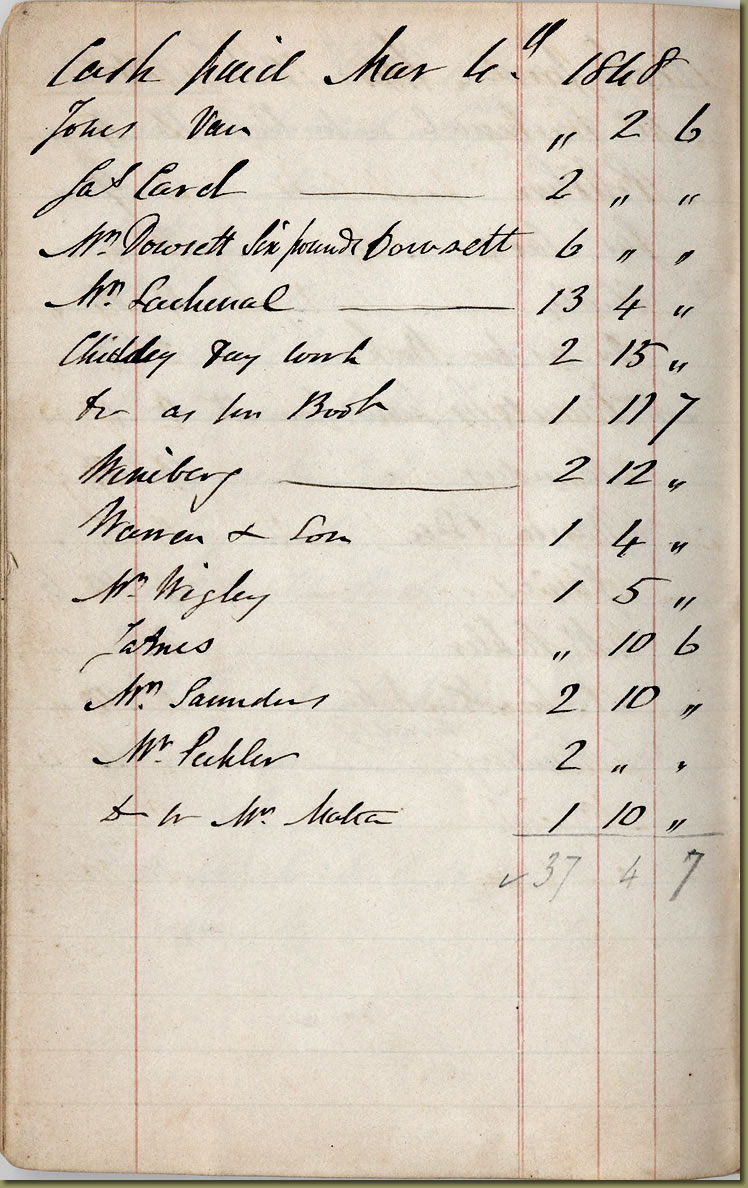 Cash paid Mar 4.th 1848
Jones Van " 2 6
Jas Card 2 " "
Mr. Dowsett Six pounds Dowsett 6 " "
Mr. Lachenal 13 4 "
Chidley Day work 2 15 "
Do as per Book 1 11 7
Weinberg 2 12 "
Warren & Son 1 4 "
Mr. Wigley 1 5 "
James " 10 6
Mr. Saunders 2 10 "
Mr. 2 " "
Mr. 1 10 "
✓ 37 4 7